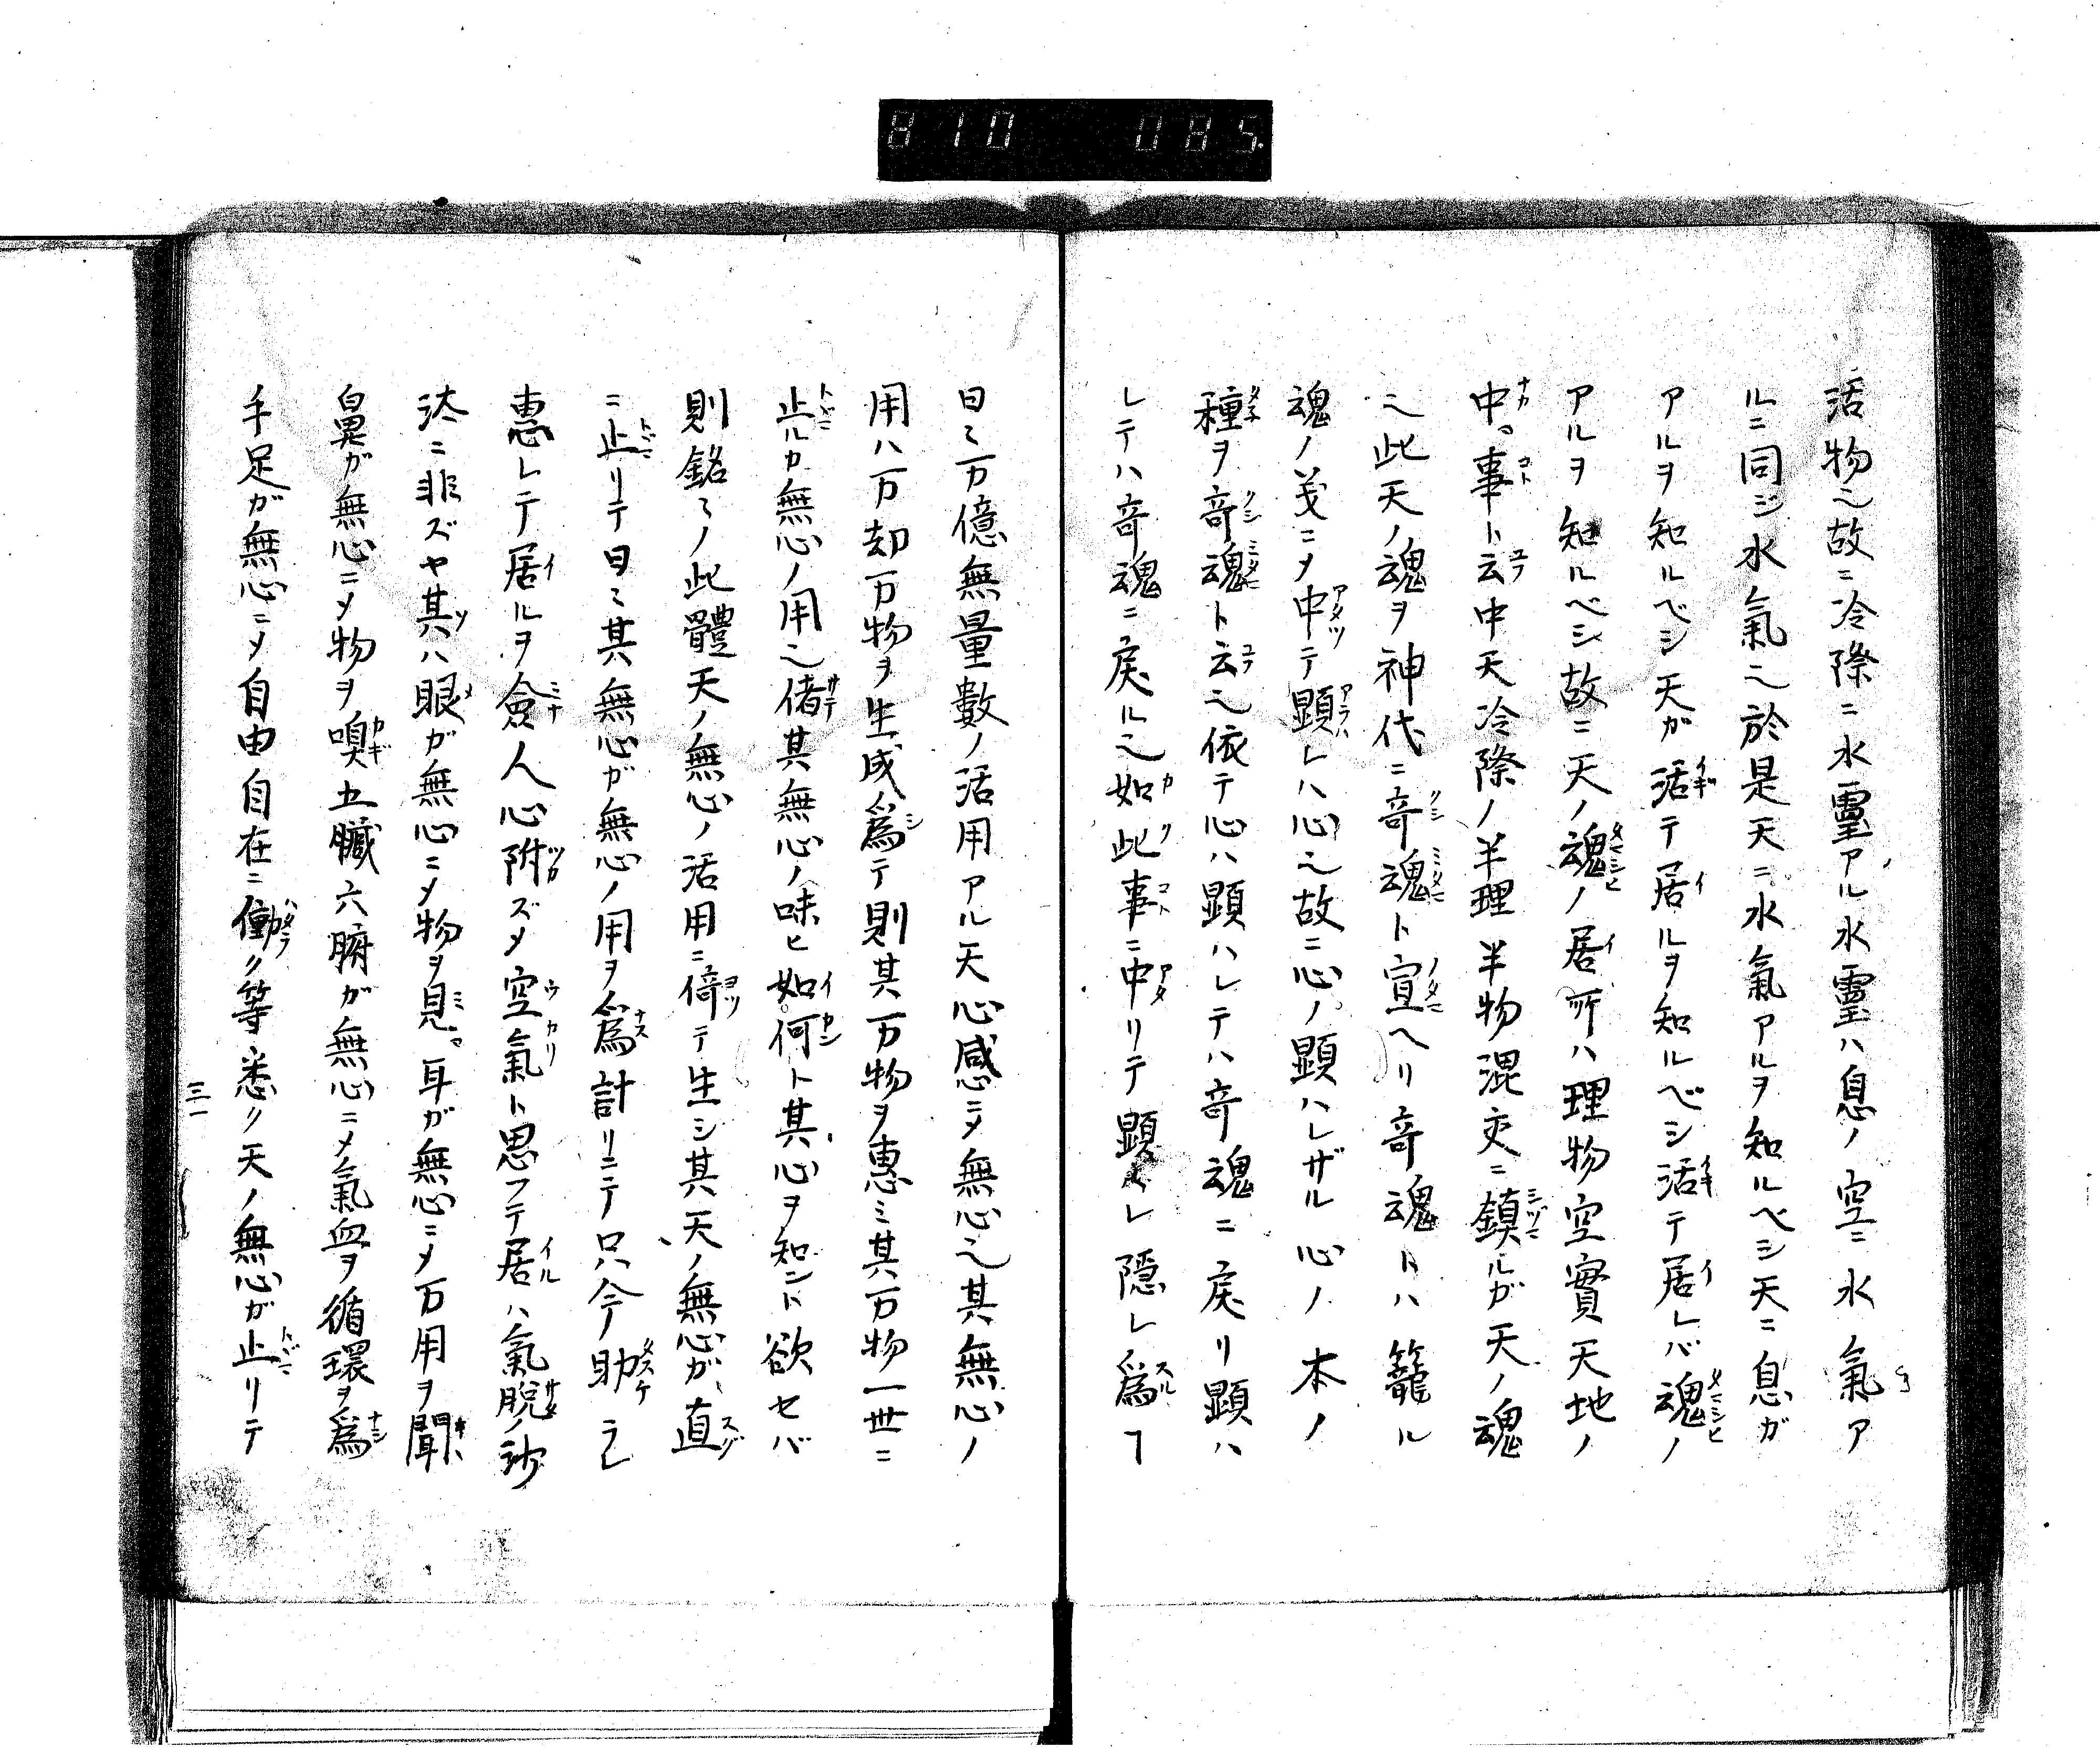 810 085.
活物〆故ニ冷際ニ水靈アル水靈ハ息ノ空ニ水氣ア
ルニ同ジ水氣〆於是天ニ水氣アルヲ知ルベシ天ニ息ガ
アルヲ知ルベシ天ガ活テ居ルヲ知ルベシ活テ居レバ魂ノ
アルヲ知ルベシ故ニ天ノ魂ノ居所ハ理物空實天地ノ
中。事ト云中天冷際ノ半理半物混交ニ鎮ルガ天ノ魂
〆此天ノ魂ヲ神代ニ奇魂ト宣ヘリ奇魂トハ籠ル
魂ノ義ニメ中テ顕レハ心〆故ニ心ノ顕ハレザル心ノ本ノ
種ヲ奇魂ト云〆依テ心ハ顕ハレテハ奇魂ニ戻リ顕ハ
レテハ奇魂ニ戻ル〆如此事ニ中リテ顕ハレ隠レ爲ヿ
日〻万億無量數ノ活用アル天心感ニメ無心〆其無心ノ
用ハ万却万物ヲ生成ノ爲テ則其万物ヲ惠ミ其万物一世ニ
止ルカ無心ノ用〆偖其無心ノ味ヒ如何ト其心ヲ知ント欲セバ
則銘〻ノ此體天ノ無心ノ活用ニ倚テ生シ其天ノ無心ガ直
ニ止リテ日〻其無心ガ無心ノ用ヲ爲計リニテ只今助ラレ
惠レテ居ルヲ僉人心附ズメ空氣ト思フテ居ハ氣脱ノ沙
汰ニ非ズヤ其ハ眼ガ無心ニメ物ヲ見。耳ガ無心ニメ万用ヲ聞
鼻ガ無心ニメ物ヲ嗅五臟六腑ガ無心ニメ氣血ヲ循環ヲ爲
手足ガ無心ニメ自由自在ニ働ク等悉ク天ノ無心ガ止リテ
三一